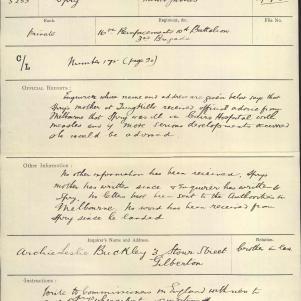 Spry
Rank
Regiment, &c.
File No.
Private
16th Reinforcements 10th Battalion
3rd Brigade
C/L
Number 171 (page 30)
OFFICIAL REPORTS:
Enquirer whose name and address are given below says that
Spry's mother at received official advice from
Melbourne that Spry was ill in Hospital with
measles and if more serious developments occurred
she would be advised
Other Information:
No other information has been received. Spry's
mother has written since & Enquirer has written to
Spry. No letter been sent to the Authorities in
Melbourne. No word has been received from
Spry since he landed
Inquirer's Name and Address.
Relation.
Archie Leslie Buckley 3 Street
Gilberton
Instructions:
Write to Commissioner in England